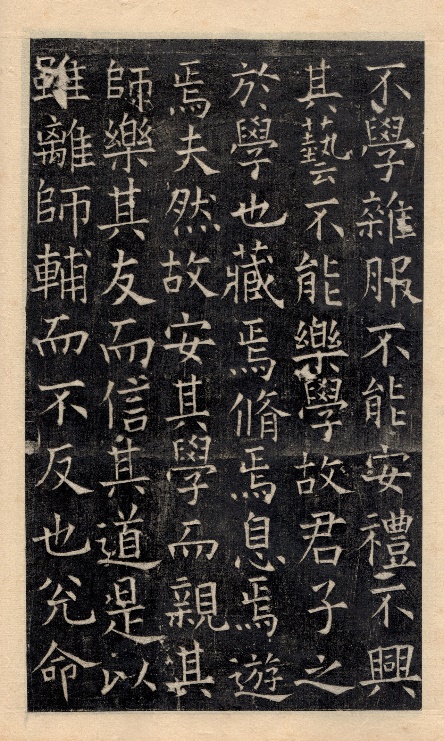 不學雜服不能安禮不興
其藝不能樂學故君子之
於學也藏焉脩焉息焉遊
焉夫然故安其學而親其
師樂其友而信其道是以
雖離師輔而不反也兊命